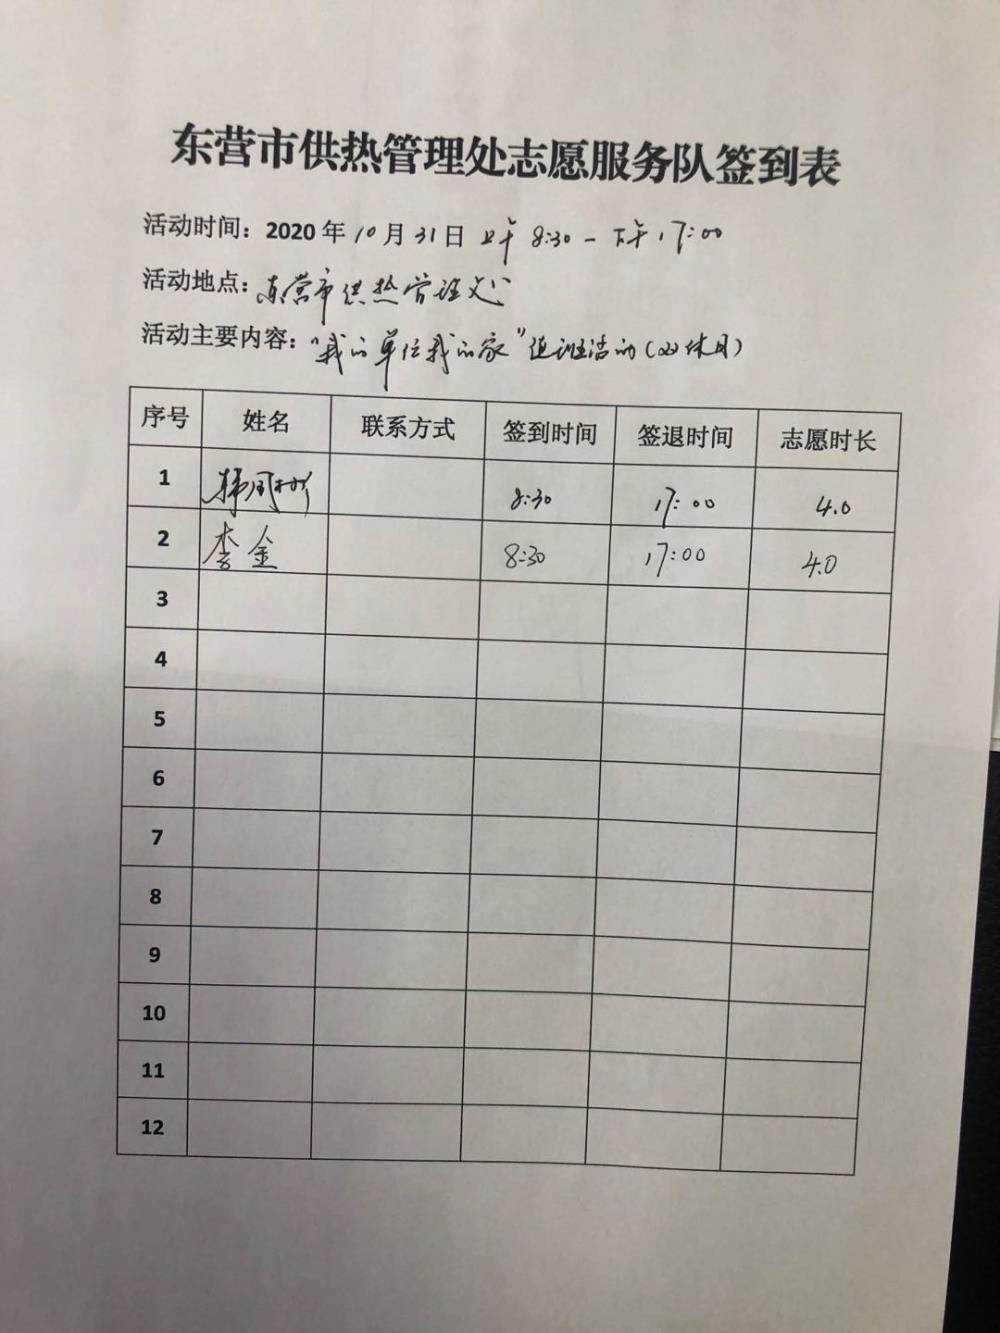 东营市供热管理处志愿服务队签到表
活动时间：2020年10月31日 上午 8:30 - 下午 17:00
活动地点：东营市供热管理
活动主要内容："我的单位我的家"值班活动(双休日)
序号 姓名 联系方式 签到时间 签退时间 志愿时长
1 韩 8:30 17:00 4.0
2 李金 8:30 17:00 4.0
3
4
5
6
7
8
9
10
11
12